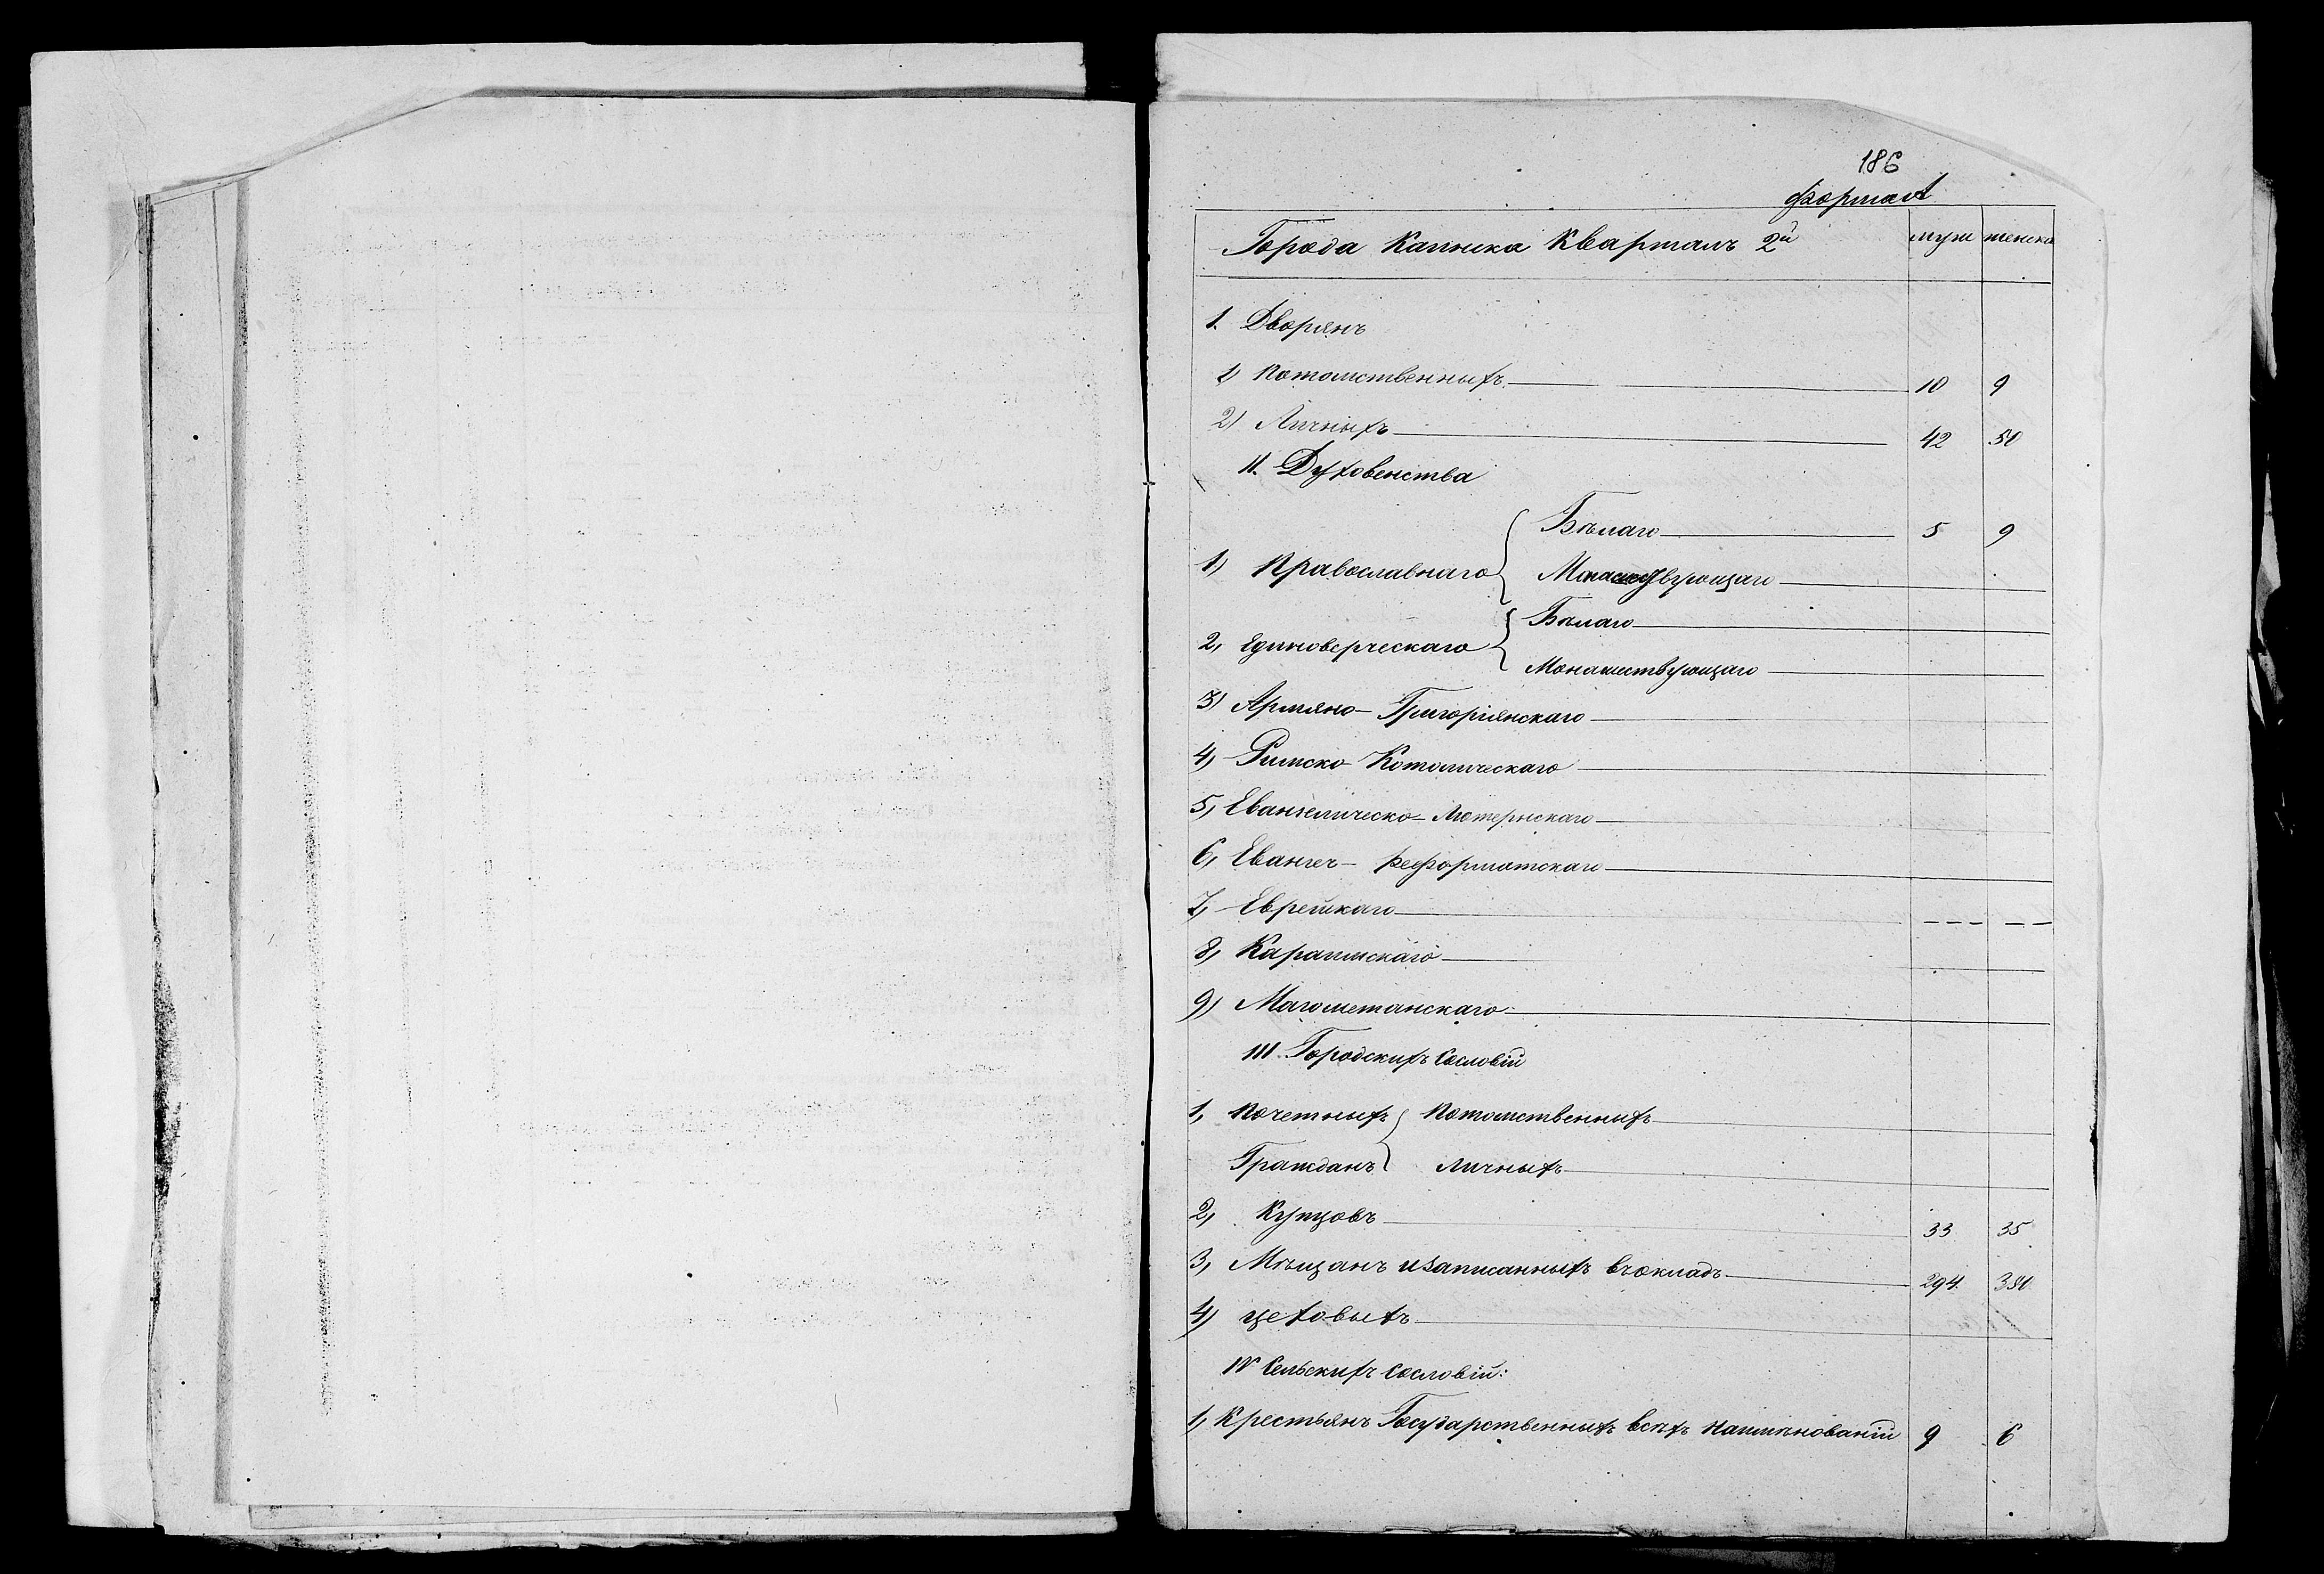 186
Форма А
Города Каинска Кварталъ 2й муж женска
1. Дворянъ
1) Потомственныхъ 10 9
2) Личныхъ 42 50
II. Духовенства
Бѣлаго 5 9
1) Православнаго Монашествующаго
Бѣлаго
2, Единоверческаго
Монашествующаго
3) Армяно-Григоріянскаго
4) Римско Котолическаго
5, Евангелическо-Лютернскаго
6, Евангел- Реформатскаго
7, Еврейскаго
8, Караимскаго
9) Магометанскаго
III. Городскихъ Сословій
1, Почетныхъ Потомственныхъ
Гражданъ Личныхъ
2, Купцовъ 33 35
3, Мѣщанъ изаписанныхъ въокладъ 294
4) цеховыхъ
IV Сельскихъ Сословій:
1, Крестьянъ Государственныхъ всѣхъ Наимѣнованій 9 6